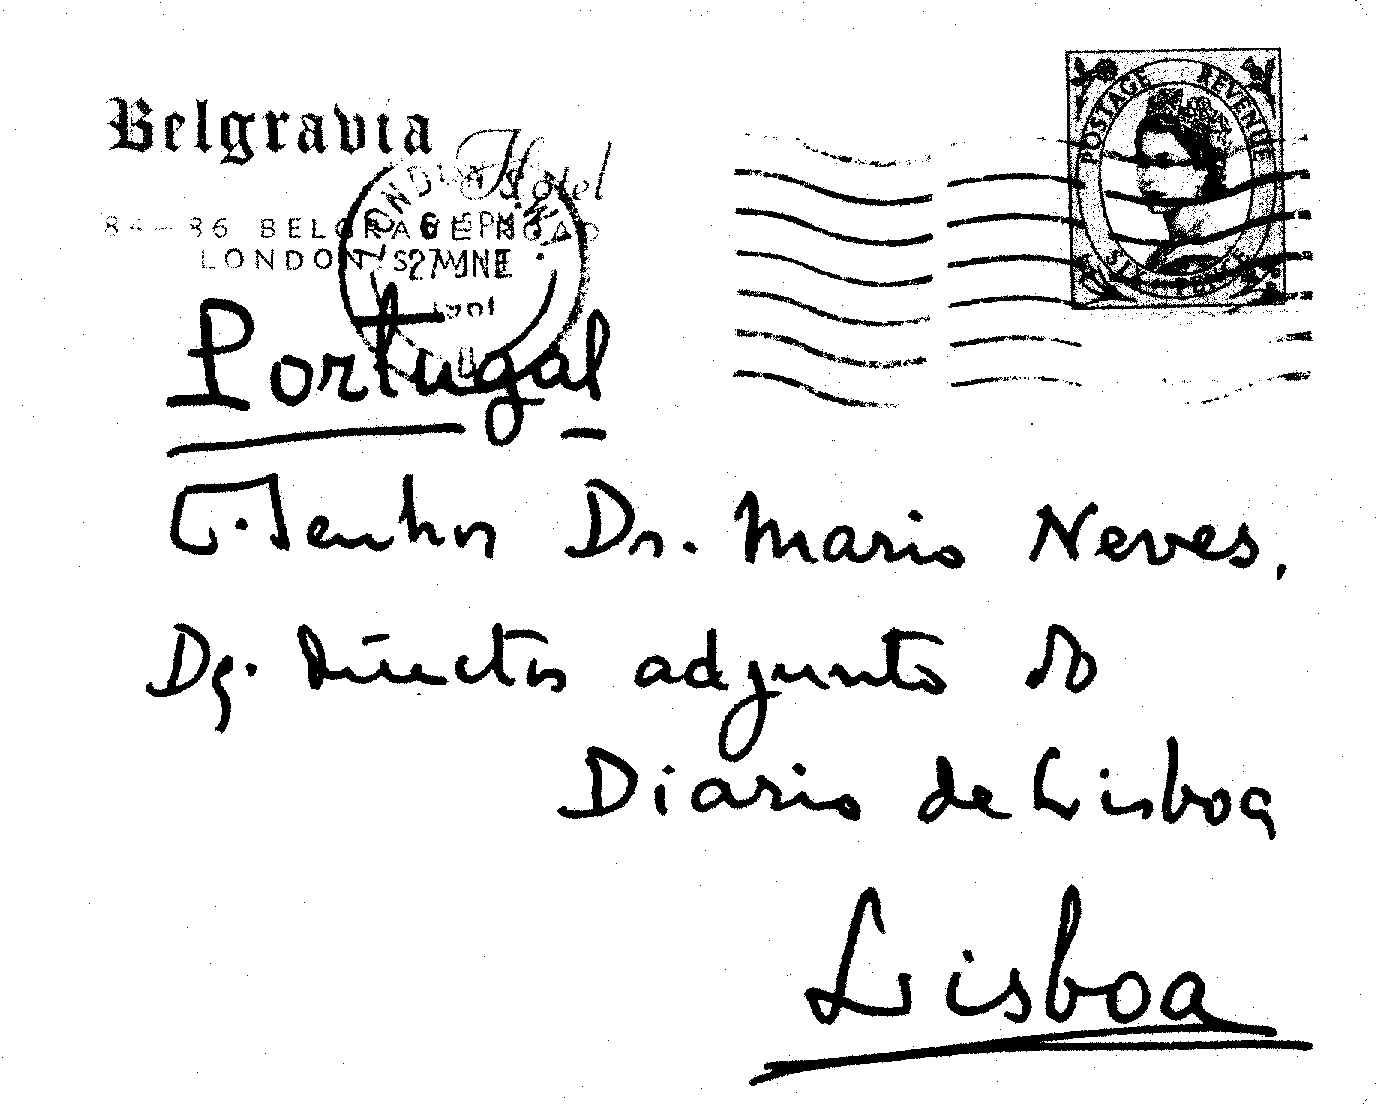 Belgravia Hotel
84-86 BELGRAVE ROAD
LONDON, S.W.1
LONDON S.W.1
6 15 PM
27 JNE
POSTAGE REVENUE
SIX PENCE
Portugal
Senhor Dr. Mario Neves,
Dg. Director adjunto do
Diario de Lisboa
Lisboa